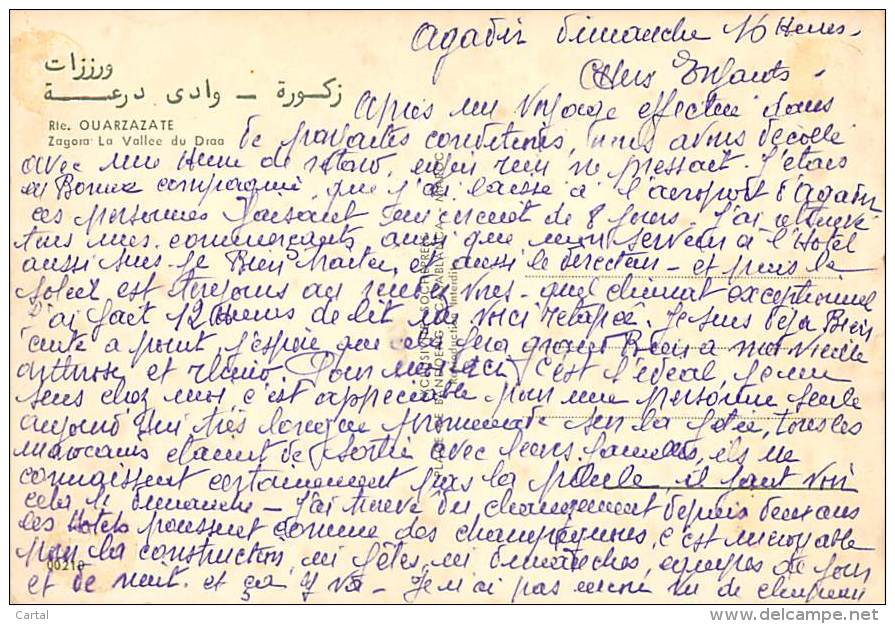 Agadir dimanche 16 Heures -
Chers Enfants -
ورززات
زكورة - وادى درعة
Rte. OUARZAZATE
Zagora La Vallée du Draa
Après un voyage effectué dans
de parfaites conditions, nous avons décollé
avec une heure de retard, enfin rien ne pressait. J'étais
en Bonne compagnie, que j'ai laissé à l'aéroport d'Agadir
ces personnes faisant un circuit de 8 jours. J'ai retrouvé
tous mes commerçants, ainsi que mon serveur à l'Hôtel
aussi le directeur - et puis le
soleil est toujours au rendez vous - quel climat exceptionnel
J'ai fait 12 heures de lit me voici retapée. Je suis déjà Bien
cuite à point, j'espère que cela fera grand Bien à ma vieille
arthrose et rhino. Pour moi ici c'est l'idéal, je me
sens chez moi c'est appréciable pour une personne seule
aujourd'hui très longue promenade sur la jetée, tous les
marocains étaient de sortie avec leurs familles, ils ne
connaissent certainement pas la pilule, il faut voir
cela le dimanche - J'ai trouvé du changement depuis deux ans
les Hotels poussent comme des champignons, c'est incroyable
pour la construction, ni fêtes, ni dimanches, équipes de jour
et de nuit. et ça y va - Je n'ai pas encore vu de
90210
MAROC
Reproduction interdite
Cartal
www.delcampe.net